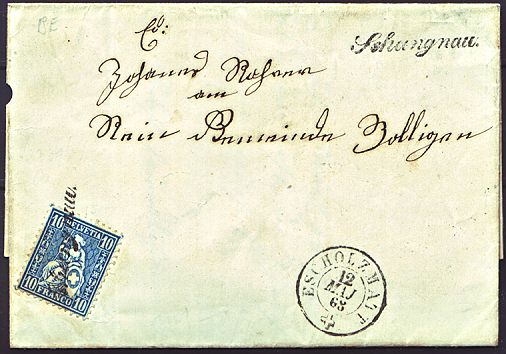 BE
Schangnau.
Johanes Rohrer
am
Rein Gemeinde Bolligen
10 HELVETIA 10
10 FRANCO 10
ESCHOLZMATT
12
MAI
63